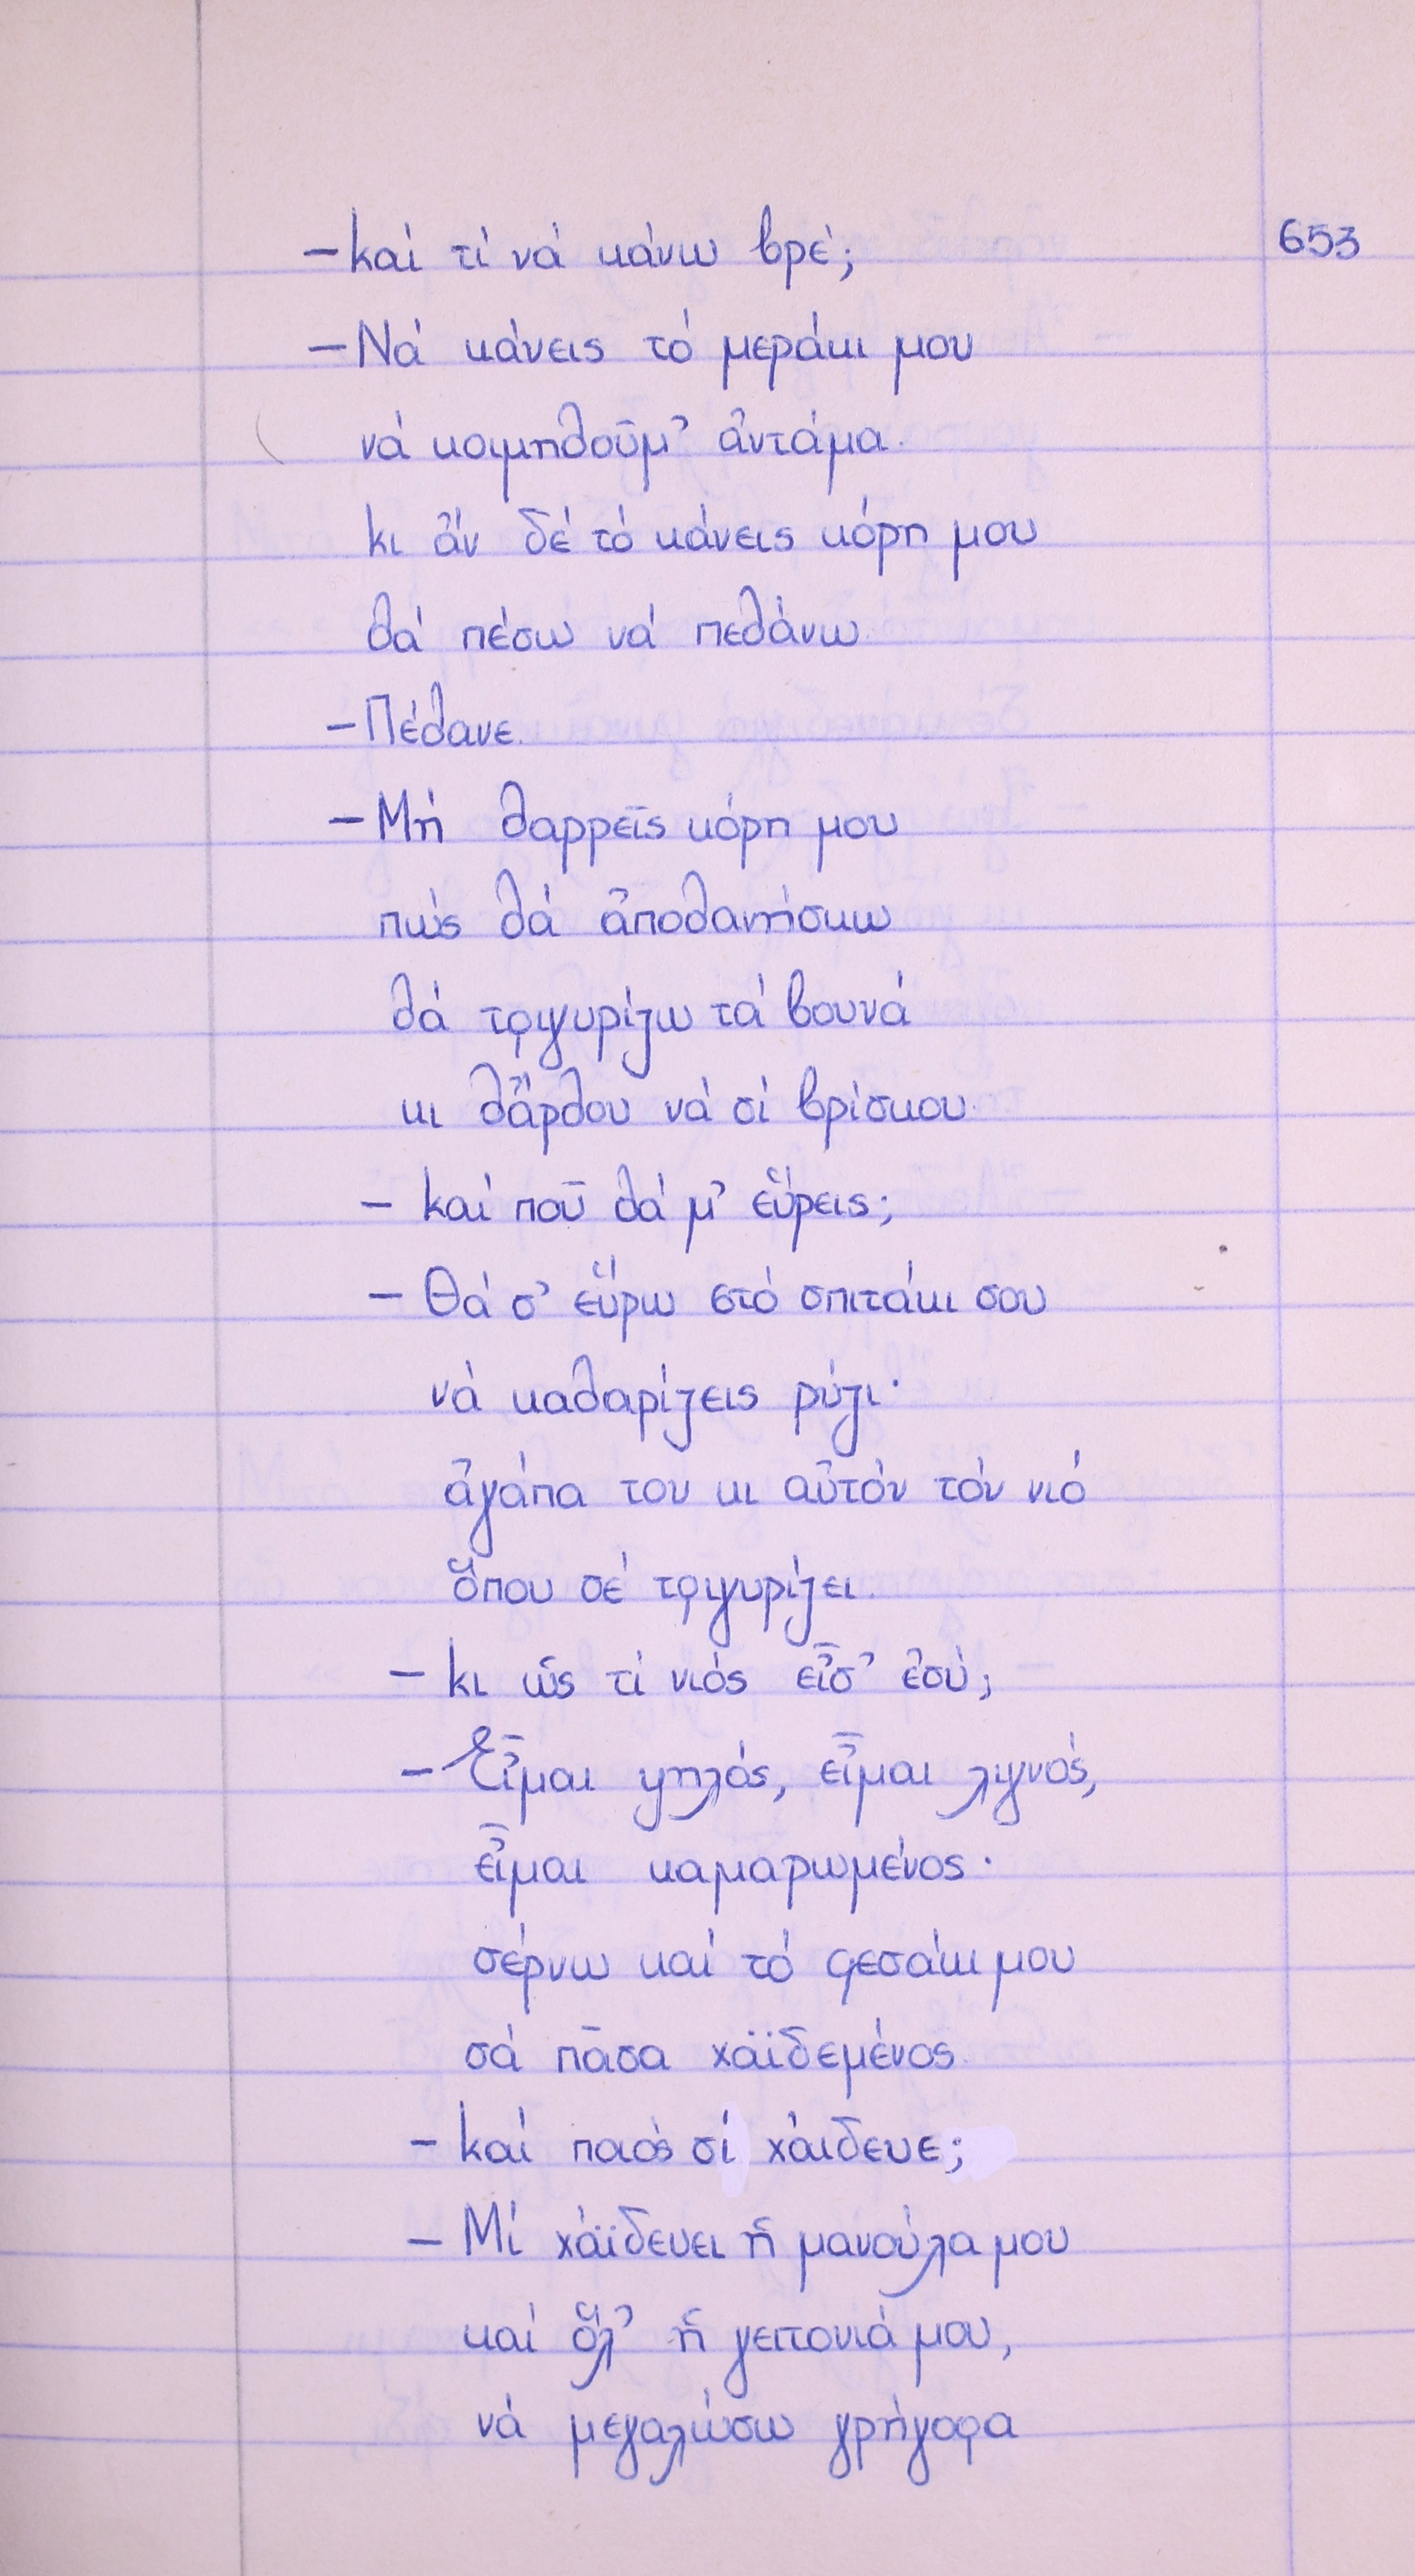 653
– Καί τί νά κάνω βρέ;
– Νά κάνεις τό μεράκι μου
νά κοιμηθοῦμ' ἀντάμα.
κι ἄν δέ τό κάνεις κόρη μου
θά πέσω νά πεθάνω.
– Πέθανε.
– Μή θαρρεῖς κόρη μου
πώς θά ἀποθανήσκω
θά τριγυρίζω τά βουνά
κι θἄρθου νά σί βρίσκου.
– Καί ποῦ θά μ' εὕρεις;
– Θά σ' εὕρω στό σπιτάκι σου
νά καθαρίζεις ρύζι·
ἀγάπα του κι αὐτόν τόν νιό
ὅπου σέ τριγυρίζει.
– Κι ὥς τί νιός εἶσ' ἐσύ;
– Εἶμαι ψηλός, εἶμαι λιγνός,
εἶμαι καμαρωμένος·
σέρνω καί τό φεσάκι μου
σά πᾶσα χαϊδεμένος.
– Καί ποιός σί χάιδευε;
– Μί χάϊδευει ἡ μανούλα μου
καί ὅλ' ἡ γειτονιά μου,
νά μεγαλώσω γρήγορα